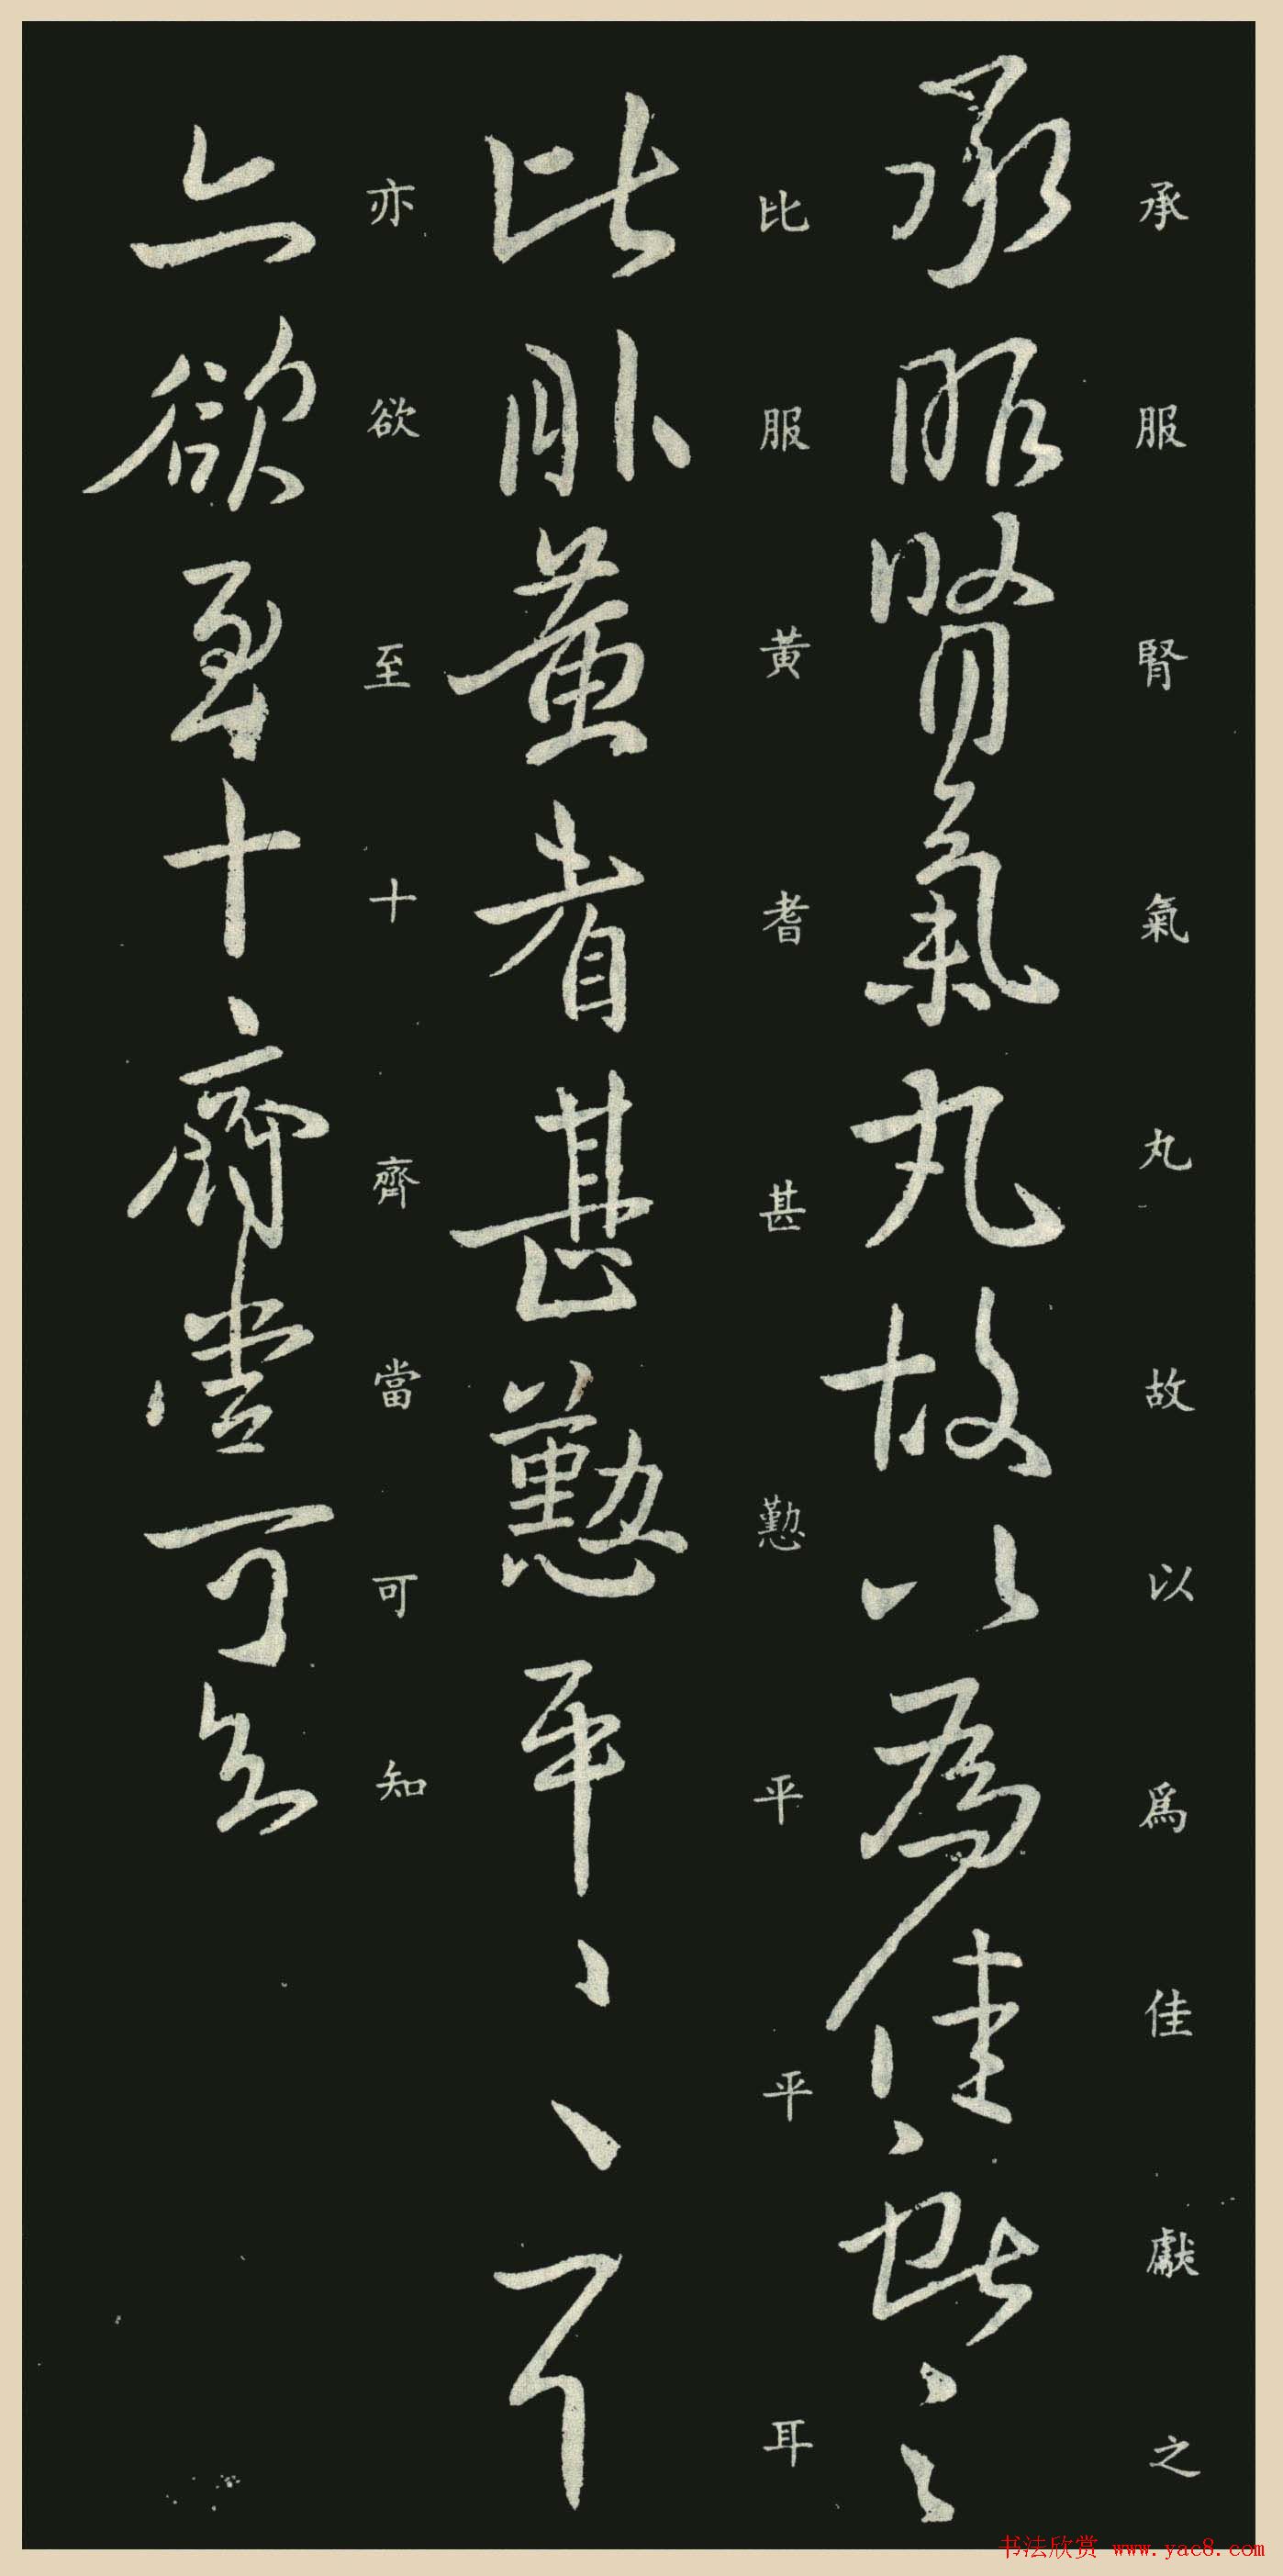 承服腎氣丸故以爲佳獻之
承服腎氣丸故以爲佳獻之
比服黃耆甚懃平平耳
比服黃耆甚懃平平耳
亦欲至十齊當可知
亦欲至十齊當可知
书法欣赏 www.yac8.com